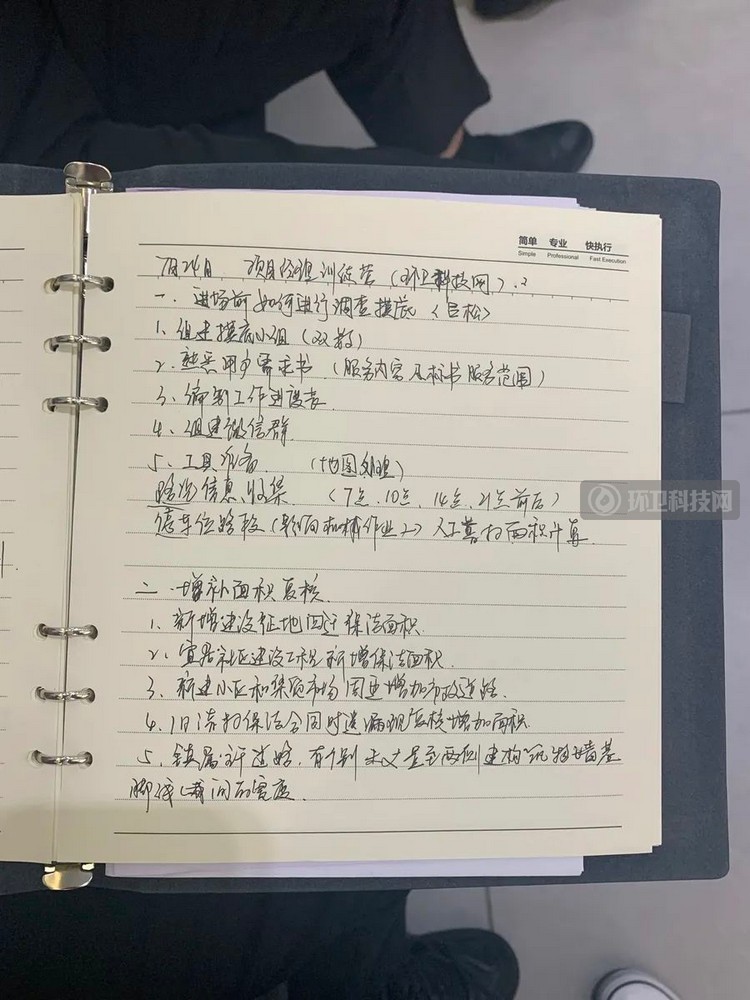 简单 专业 快执行
Simple Professional Fast Execution
7月24日 项目经理训练营 (环卫科技网)
一、进场前如何进行调查摸底 <吕松>
1、组建摸底小组 (双数)
2、熟悉用户需求书 (服务内容及标书服务范围)
3、编制工作进度表
4、组建微信群
5、工具准备 (地图处理)
路况信息收集 (7点、10点、14点、21点前后)
停车位路段 (影响机械作业) 人工普扫面积计算
二、增补面积复核
1、新增建设征地回迁保洁面积
2、宜居社区建设工程新增保洁面积
3、新建小区和集贸市场周边增加市政道路
4、旧清扫保洁合同时遗漏现复核增加面积
5、镇属村道路,有个别未丈量至两侧建构筑物墙基
脚线之间的宽度
环卫科技网